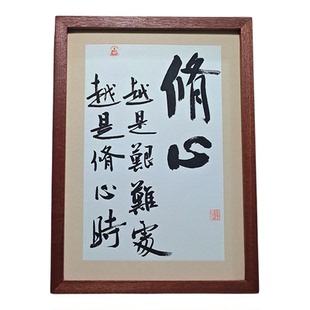 脩心
越是艱難處
越是脩心時